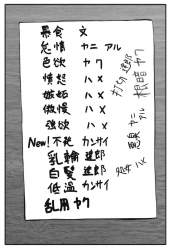 暴食 文
怠惰 ヤニ アル
色欲 ヤク
憤怒 ハメ
嫉妬 ハメ
傲慢 ハメ
強欲 ハメ
New! 不死 カンサイ
乳輪
白髪
低温 カンサイ
乱用 ヤク
根暗 ヤク
悪臭 ヤニ アル
ハメ